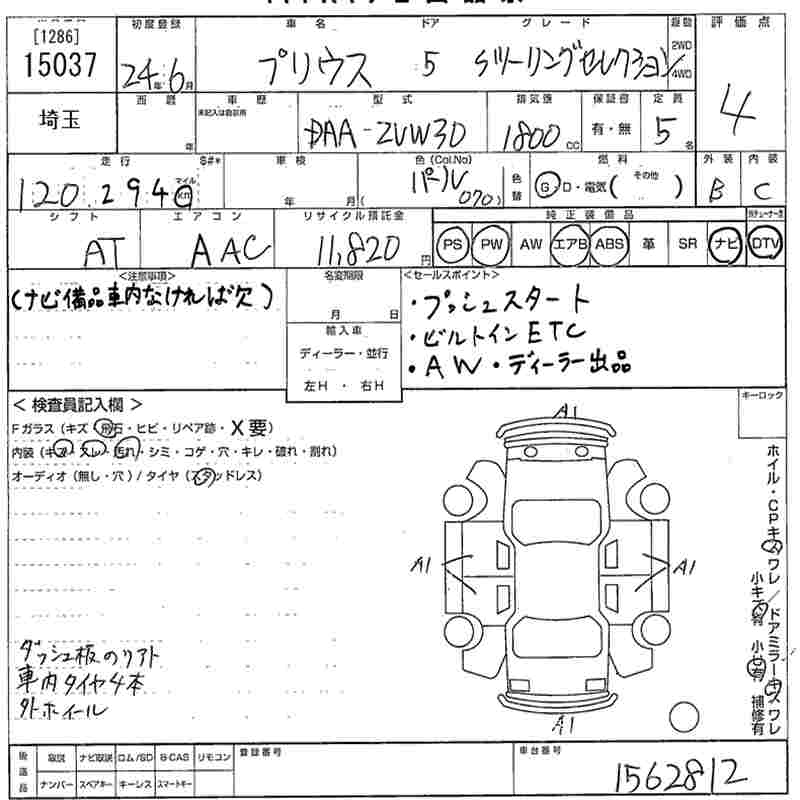 [1286]
15037
埼玉
初度登録
24年6月
車名
プリウス
ドア
5
グレード
Sツーリングセレクション
駆動
2WD
4WD
評価点
4
西暦
年
車歴
未記入は自家用
型式
DAA-ZVW30
排気量
1800cc
保証書
有・無
定員
5名
走行
120,294
マイル
Km
S#*
車検
年 月
色(Col.No)
パール
(070)
色替
燃料
G・D・電気(その他 )
外装
B
内装
C
シフト
AT
エアコン
AAC
リサイクル預託金
11,820円
純正装備品
PS PW AW エアB ABS 革 SR ナビ
DTV
<注意事項>
(ナビ備品車内なければ欠)
名変期限
月 日
輸入車
ディーラー・並行
左H・右H
<セールスポイント>
・プッシュスタート
・ビルトインETC
・AW・ディーラー出品
<検査員記入欄>
Fガラス(キズ・飛石・ヒビ・リペア跡・X要)
内装(キズ・スレ・汚れ・シミ・コゲ・穴・キレ・破れ・割れ)
オーディオ(無し・穴)/タイヤ(スタッドレス)
ダッシュ板のリアト
車内タイヤ4本
外ホイール
A1
A1
A1
A1
キーロック
ホイル・CPキズワレ/ドアミラーキズワレ
小キズ有 小凹有 補修有
後送品
取説 ナビ取説 ロム/SD B-CAS リモコン
ナンバー スペアキー キーレス スマートキー
登録番号
車台番号
1562812